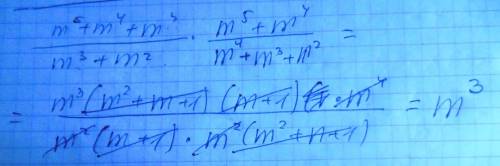 m⁵+m⁴+m³ / m³+m² · m⁵+m⁴ / m⁴+m³+m² =
= m³(m²+m+1)(m+1)·m⁴ / m²(m+1)·m²(m²+m+1) = m³